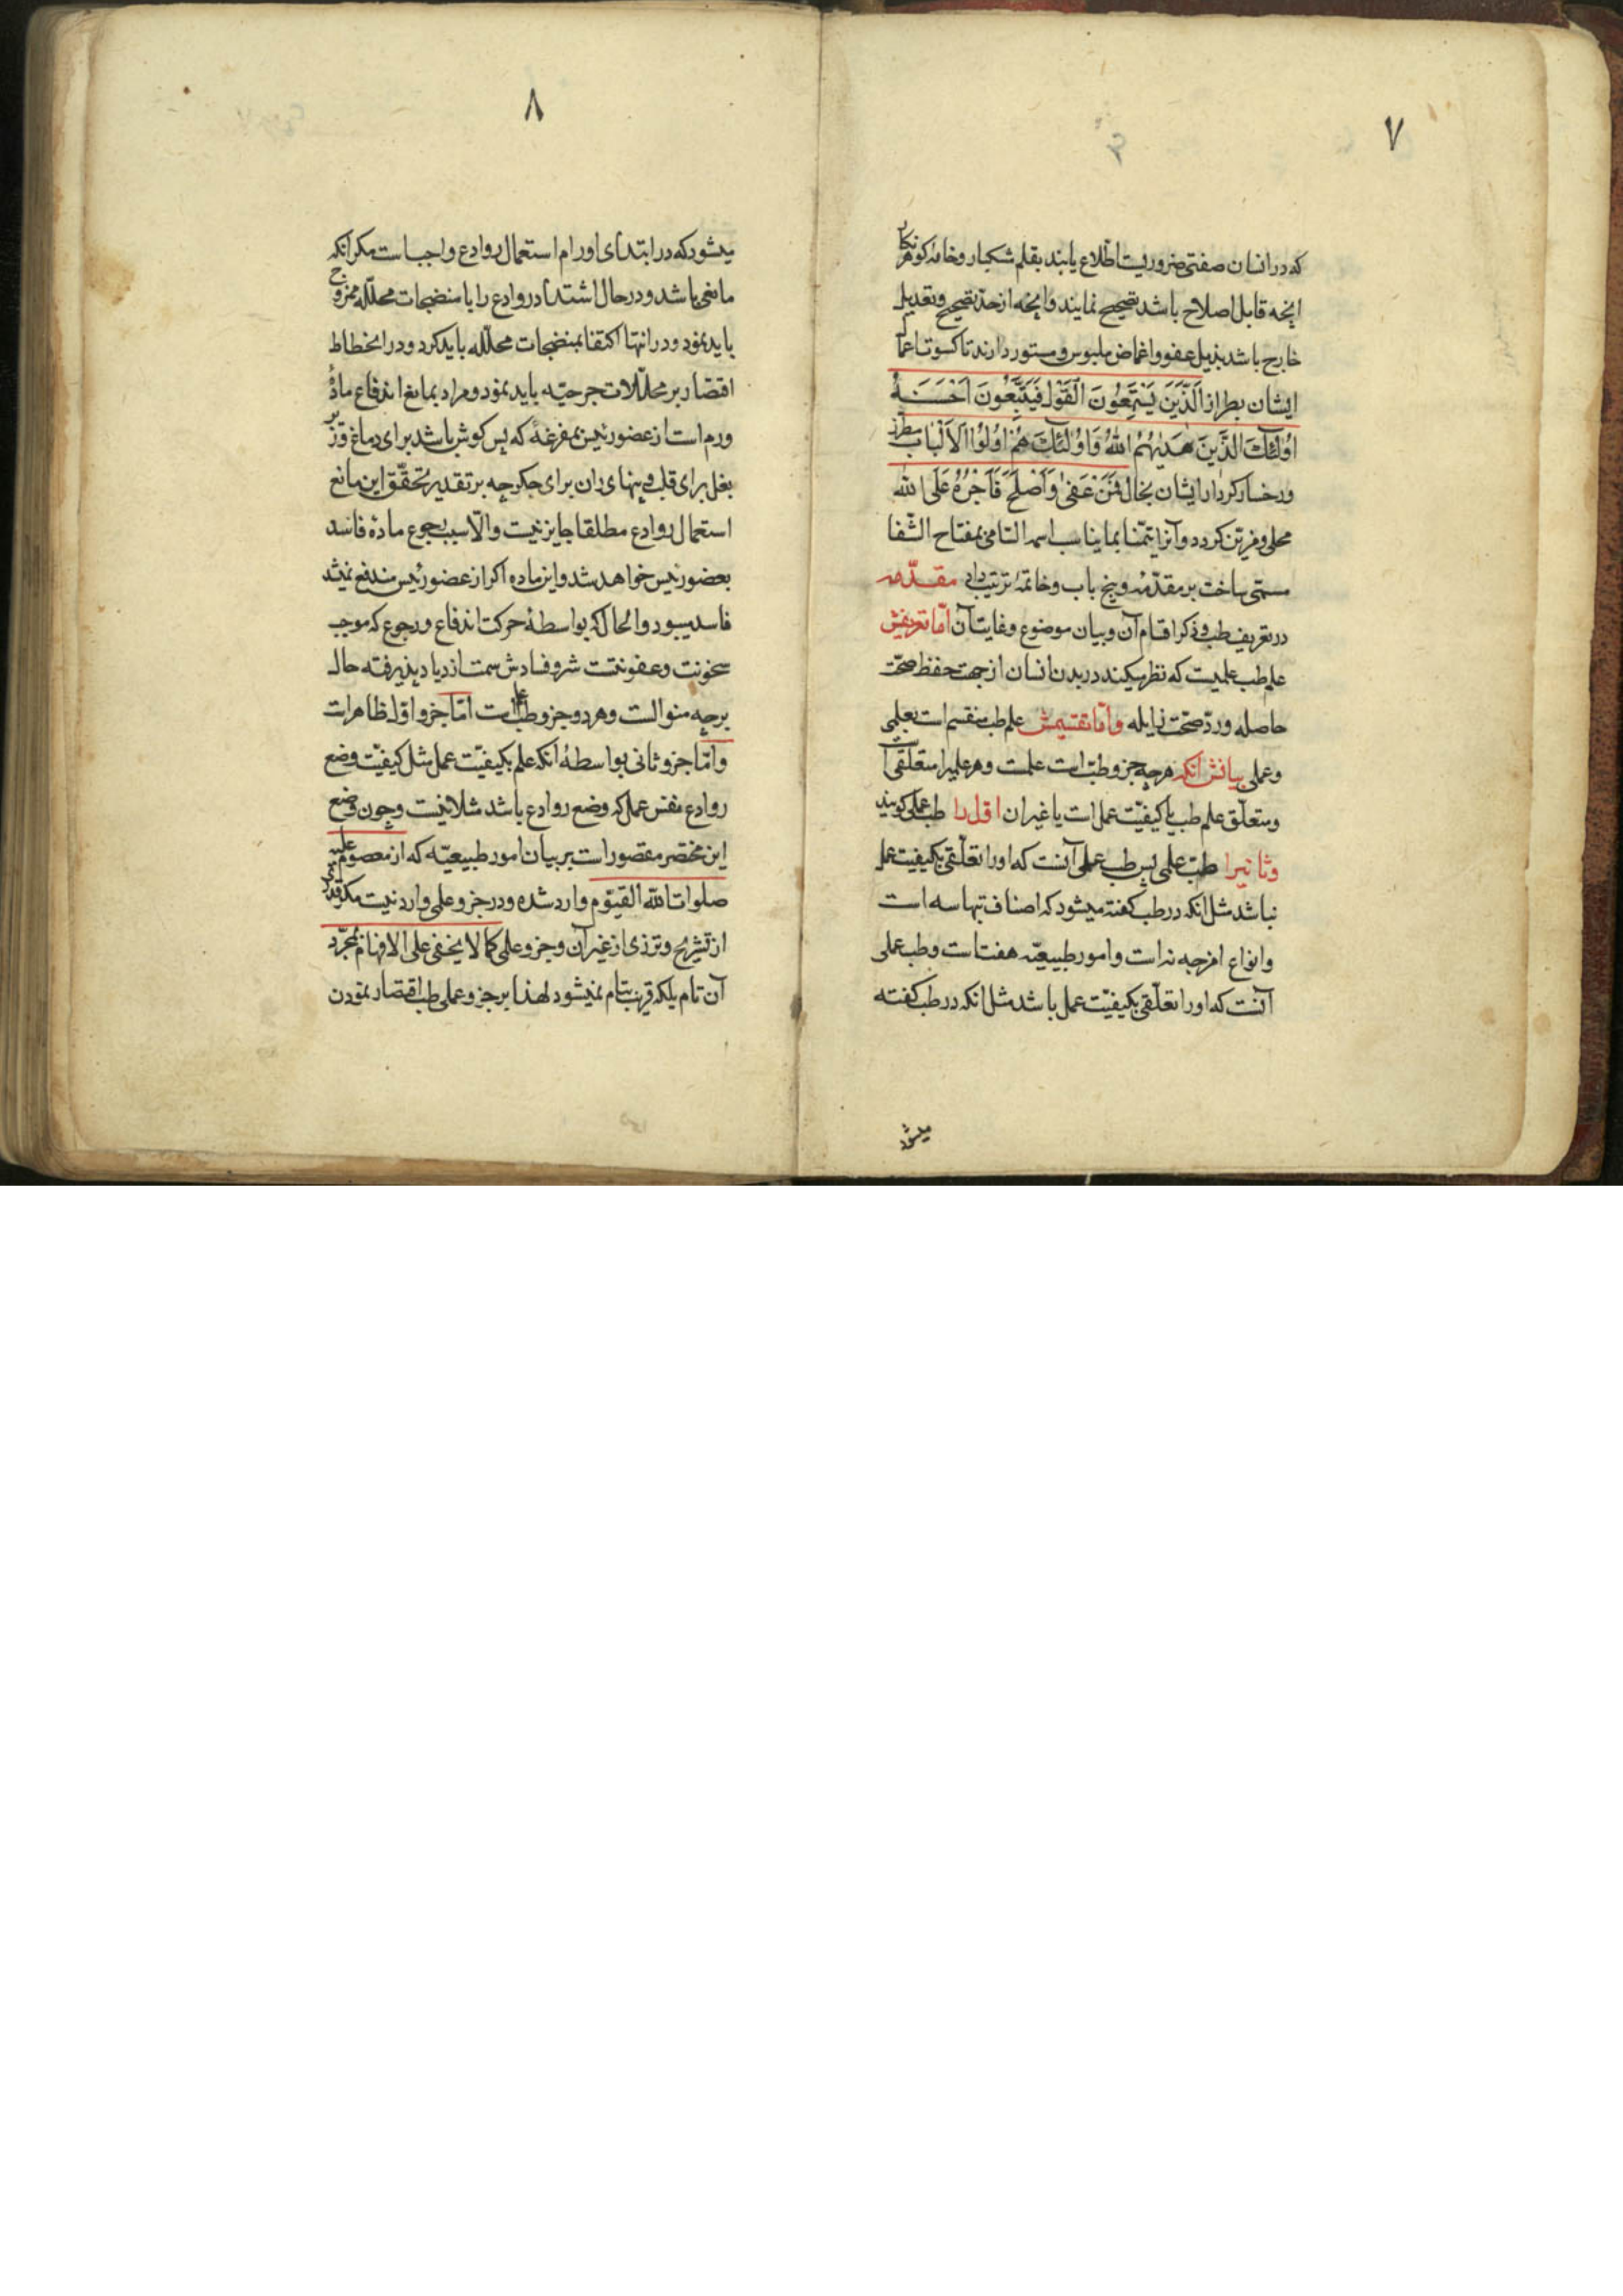 ۷
که در انسان صفتی ضروریست اطّلاع یابند بقلم مشکبار و خامهٔ کوهر نکار
انچه قابل اصلاح باشد تصحیح نمایند و انچه از حدّ تصحیح و تعدیل
خارج باشد بذیل عفو و اغماض ملبوس و مستور دارند تا کسوت اعمال
ایشان بطراز اَلَّذینَ یَسْتَمِعُونَ الْقَوْلَ فَیَتَّبِعُونَ اَحْسَنَهُ
اُولٰئِكَ الَّذینَ هَدیٰهُمُ اللهُ وَاُولٰئِكَ هُمْ اوُلُوا الْاَلْبٰابِ مطرّز
و رخسار کردار ایشان بخال فَمَنْ عَفیٰ وَاَصْلَحَ فَاَجْرُهُ عَلَی الله
محلی و مزیّن کردد و آنرا تیمّنا بما یناسب اسمه السّامی بمفتاح الشّفا
مسمّی ساخت بر مقدّمه و پنج باب و خاتمهٔ ترتیب داد مقدّمه
در تعریف طب و ذکر اقسام آن و بیان موضوع و غایت آن امّا تعریفش
علم طب علمیست که نظر میکند در بدن انسان از جهت حفظ صحّت
حاصله و ردّ صحّت زایله وامّا تقسیمش علم طب منقسم است بعلمی
و عملی بیانش آنکه هرچه جزو طبّ است علمست و هر علمیرا متعلّقی است
و متعلّق علم طب یا کیفیّت عمل است یا غیر ان اوّل را طب عملی کویند
و ثانیرا طبّ علمی پس طب علمی آنست که او را تعلّقی بکیفیّت عمل
نباشد مثل انکه در طب کفته میشود که اصناف تبها سه است
و انواع امزجه نه است و امور طبیعیّه هفت است و طب عملی
آنست که او را تعلّقی بکیفیّت عمل باشد مثل انکه در طب کفته
میشود
۸
میشود که در ابتدای اورام استعمال روادع واجب است مکر انکه
مانعی باشد و در حال اشتداد روادع را با منضجات محلّله ممزوج
باید نمود و در انتها اکتفا بمنضجات محلّله باید کرد و در انحطاط
اقتصار بر محلّلات باید نمود و مراد بمانع اندفاع مادّهٔ
ورم است از عضو رئیس بمفرغهٔ که پس کوش باشد برای دماغ و زیر
بغل برای قلب و بنهای ران برای جکر چه بر تقدیر تحقّق این مانع
استعمال روادع مطلقا جایز نیست والّا سبب رجوع مادّهٔ فاسد
بعضو رئیس خواهد شد و این ماده اکر از عضو رئیس مندفع نمیشد
فاسد میبود والحال که بواسطهٔ حرکت اندفاع و رجوع که موجب
سخونت و عفونتست شر و فسادش سمت ازدیاد پذیرفته حال
برچه منوالست و هر دو جزو طب علم است امّا جزو اوّل ظاهر است
و امّا جزو ثانی بواسطهٔ آنکه علم بکیفیّت عمل مثل کیفیّت وضع
روادع نفس عمل که وضع روادع باشد مثلا نیست و چون وضع
این مختصر مقصور است بر بیان امور طبیعیّه که از معصوم علیه
صلوات الله القیّوم وارد شده و در جزو علمی وارد نیست مکر قدری
از تشریح و نزری از غیر آن و جزو علمی کما لا یخفی علی الافهام بمجرّد
آن تام بلکه قریب بتام نمیشود لهذا بر جزو عملی طب اقتصار نمودن